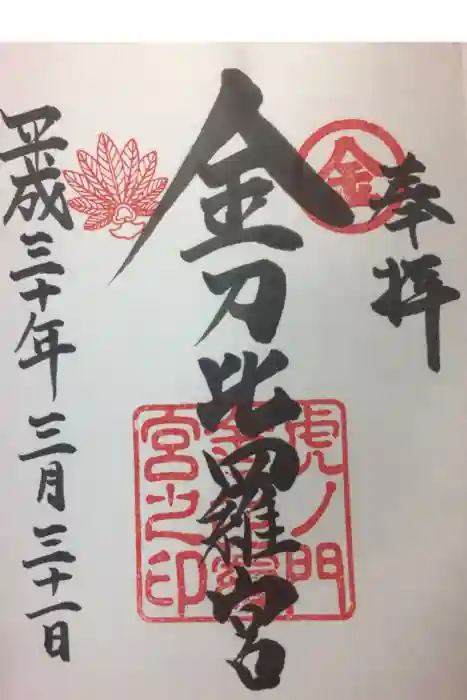 奉拝
金
金刀比羅宮
虎ノ門
金刀比羅
宮之印
平成三十年三月三十一日